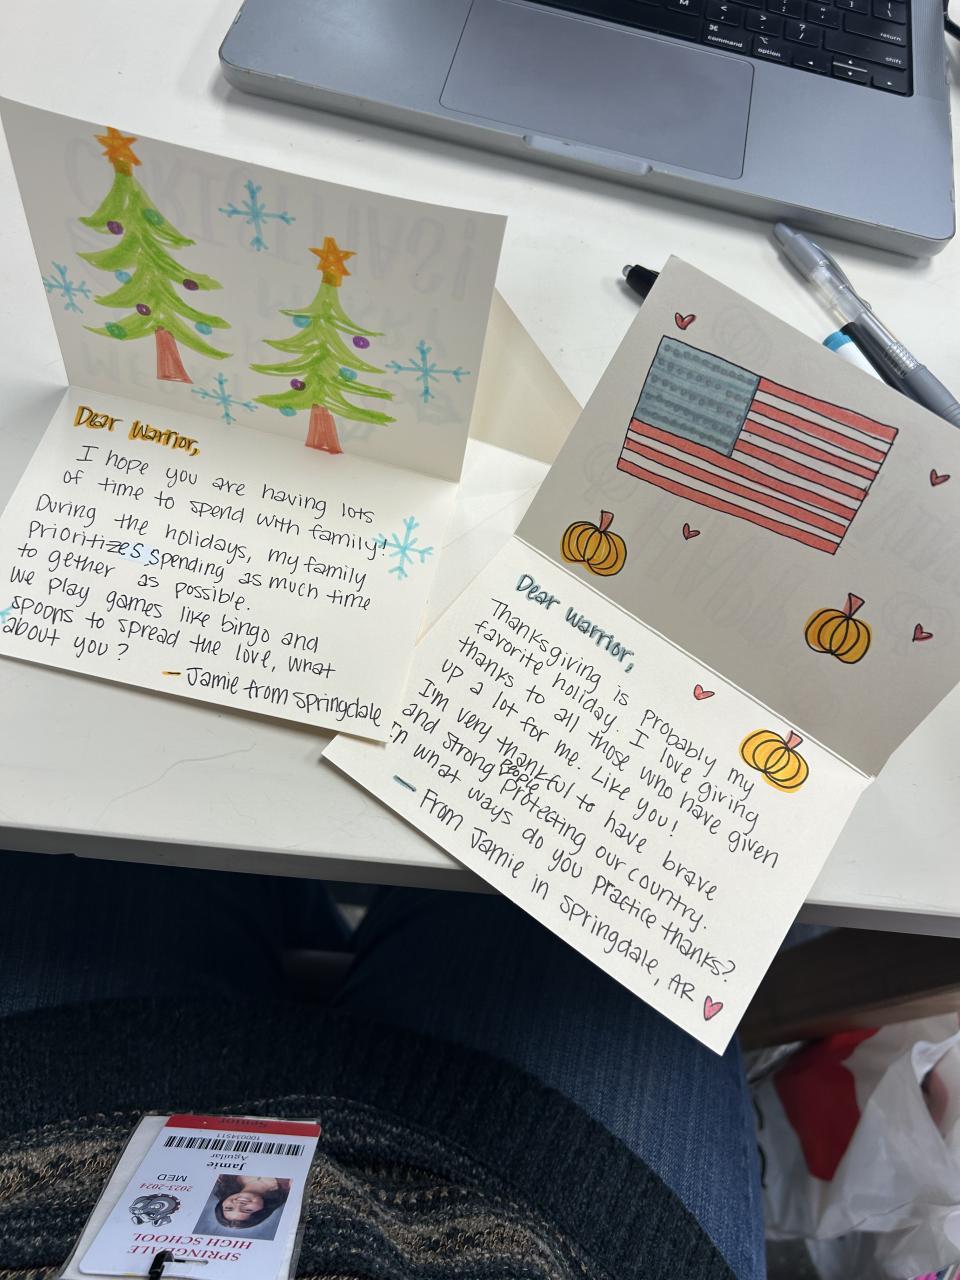 Dear Warrior,
I hope you are having lots
of time to spend with family!
During the holidays, my family
prioritizes spending as much time
to gether as possible.
We play games like bingo and
spoons to spread the love, what
about you?
— Jamie from Springdale
Dear Warrior,
Thanksgiving is probably my
favorite holiday. I love giving
thanks to all those who have given
up a lot for me. Like you!
I'm very thankful to have brave
and strong people protecting our country.
In what ways do you practice thanks?
— From Jamie in Springdale, AR
command
option
return
shift
M
<
,
>
.
?
/
⌘
⌥
Senior
100034511
Jamie
Aguilar
MED
2023-2024
SPRINGDALE
HIGH SCHOOL